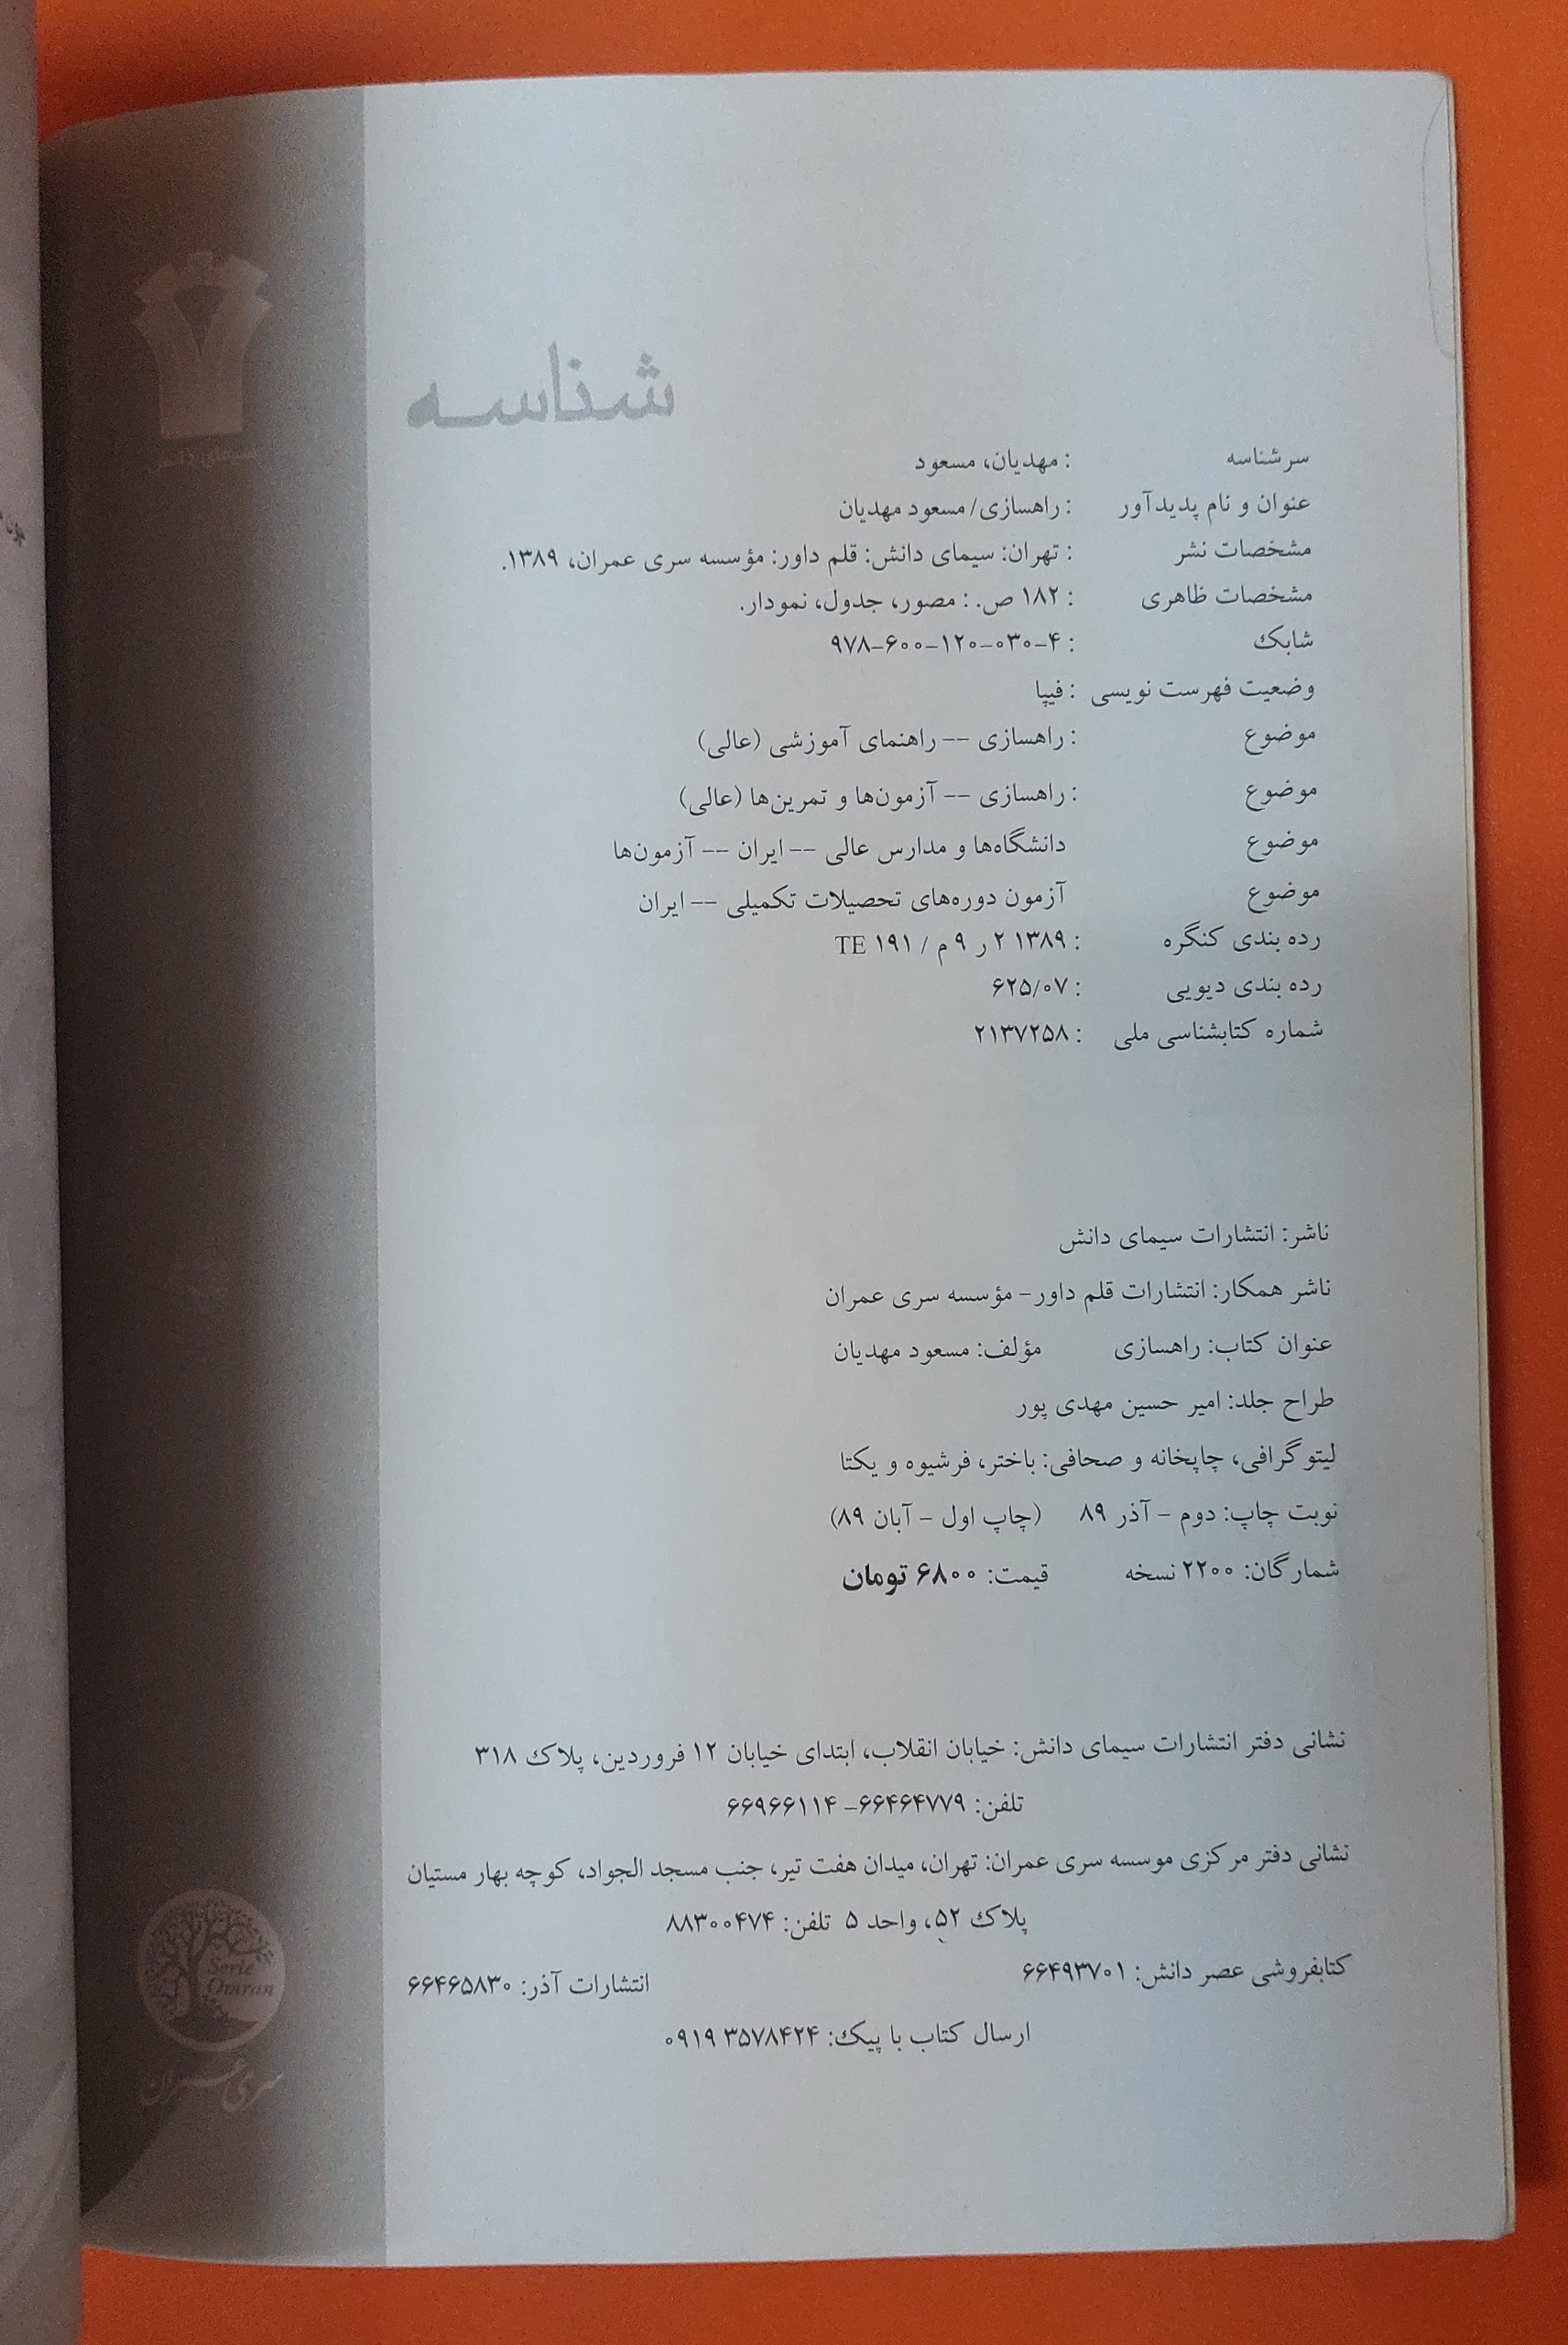 شناسه
سرشناسه : مهدیان، مسعود
عنوان و نام پدیدآور : راهسازی/ مسعود مهدیان
مشخصات نشر : تهران: سیمای دانش: قلم داور: مؤسسه سری عمران، ۱۳۸۹.
مشخصات ظاهری : ۱۸۲ ص. : مصور، جدول، نمودار.
شابک : ۴-۰۳۰-۱۲۰-۶۰۰-۹۷۸
وضعیت فهرست نویسی : فیپا
موضوع : راهسازی -- راهنمای آموزشی (عالی)
موضوع : راهسازی -- آزمون‌ها و تمرین‌ها (عالی)
موضوع دانشگاه‌ها و مدارس عالی -- ایران -- آزمون‌ها
موضوع آزمون دوره‌های تحصیلات تکمیلی -- ایران
رده بندی کنگره : ۱۳۸۹ ۲ ر ۹ م / TE ۱۹۱
رده بندی دیویی : ۶۲۵/۰۷
شماره کتابشناسی ملی : ۲۱۳۷۲۵۸
ناشر: انتشارات سیمای دانش
ناشر همکار: انتشارات قلم داور- مؤسسه سری عمران
عنوان کتاب: راهسازی مؤلف: مسعود مهدیان
طراح جلد: امیر حسین مهدی پور
لیتوگرافی، چاپخانه و صحافی: باختر، فرشیوه و یکتا
نوبت چاپ: دوم - آذر ۸۹ (چاپ اول - آبان ۸۹)
شمارگان: ۲۲۰۰ نسخه قیمت: ۶۸۰۰ تومان
نشانی دفتر انتشارات سیمای دانش: خیابان انقلاب، ابتدای خیابان ۱۲ فروردین، پلاک ۳۱۸
تلفن: ۶۶۴۶۴۷۷۹- ۶۶۹۶۶۱۱۴
نشانی دفتر مرکزی موسسه سری عمران: تهران، میدان هفت تیر، جنب مسجد الجواد، کوچه بهار مستیان
پلاک ۵۲، واحد ۵ تلفن: ۸۸۳۰۰۴۷۴
کتابفروشی عصر دانش: ۶۶۴۹۳۷۰۱ انتشارات آذر: ۶۶۴۶۵۸۳۰
ارسال کتاب با پیک: ۳۵۷۸۴۲۴ ۰۹۱۹
سیمای دانش
Serie
Omran
سری عمران